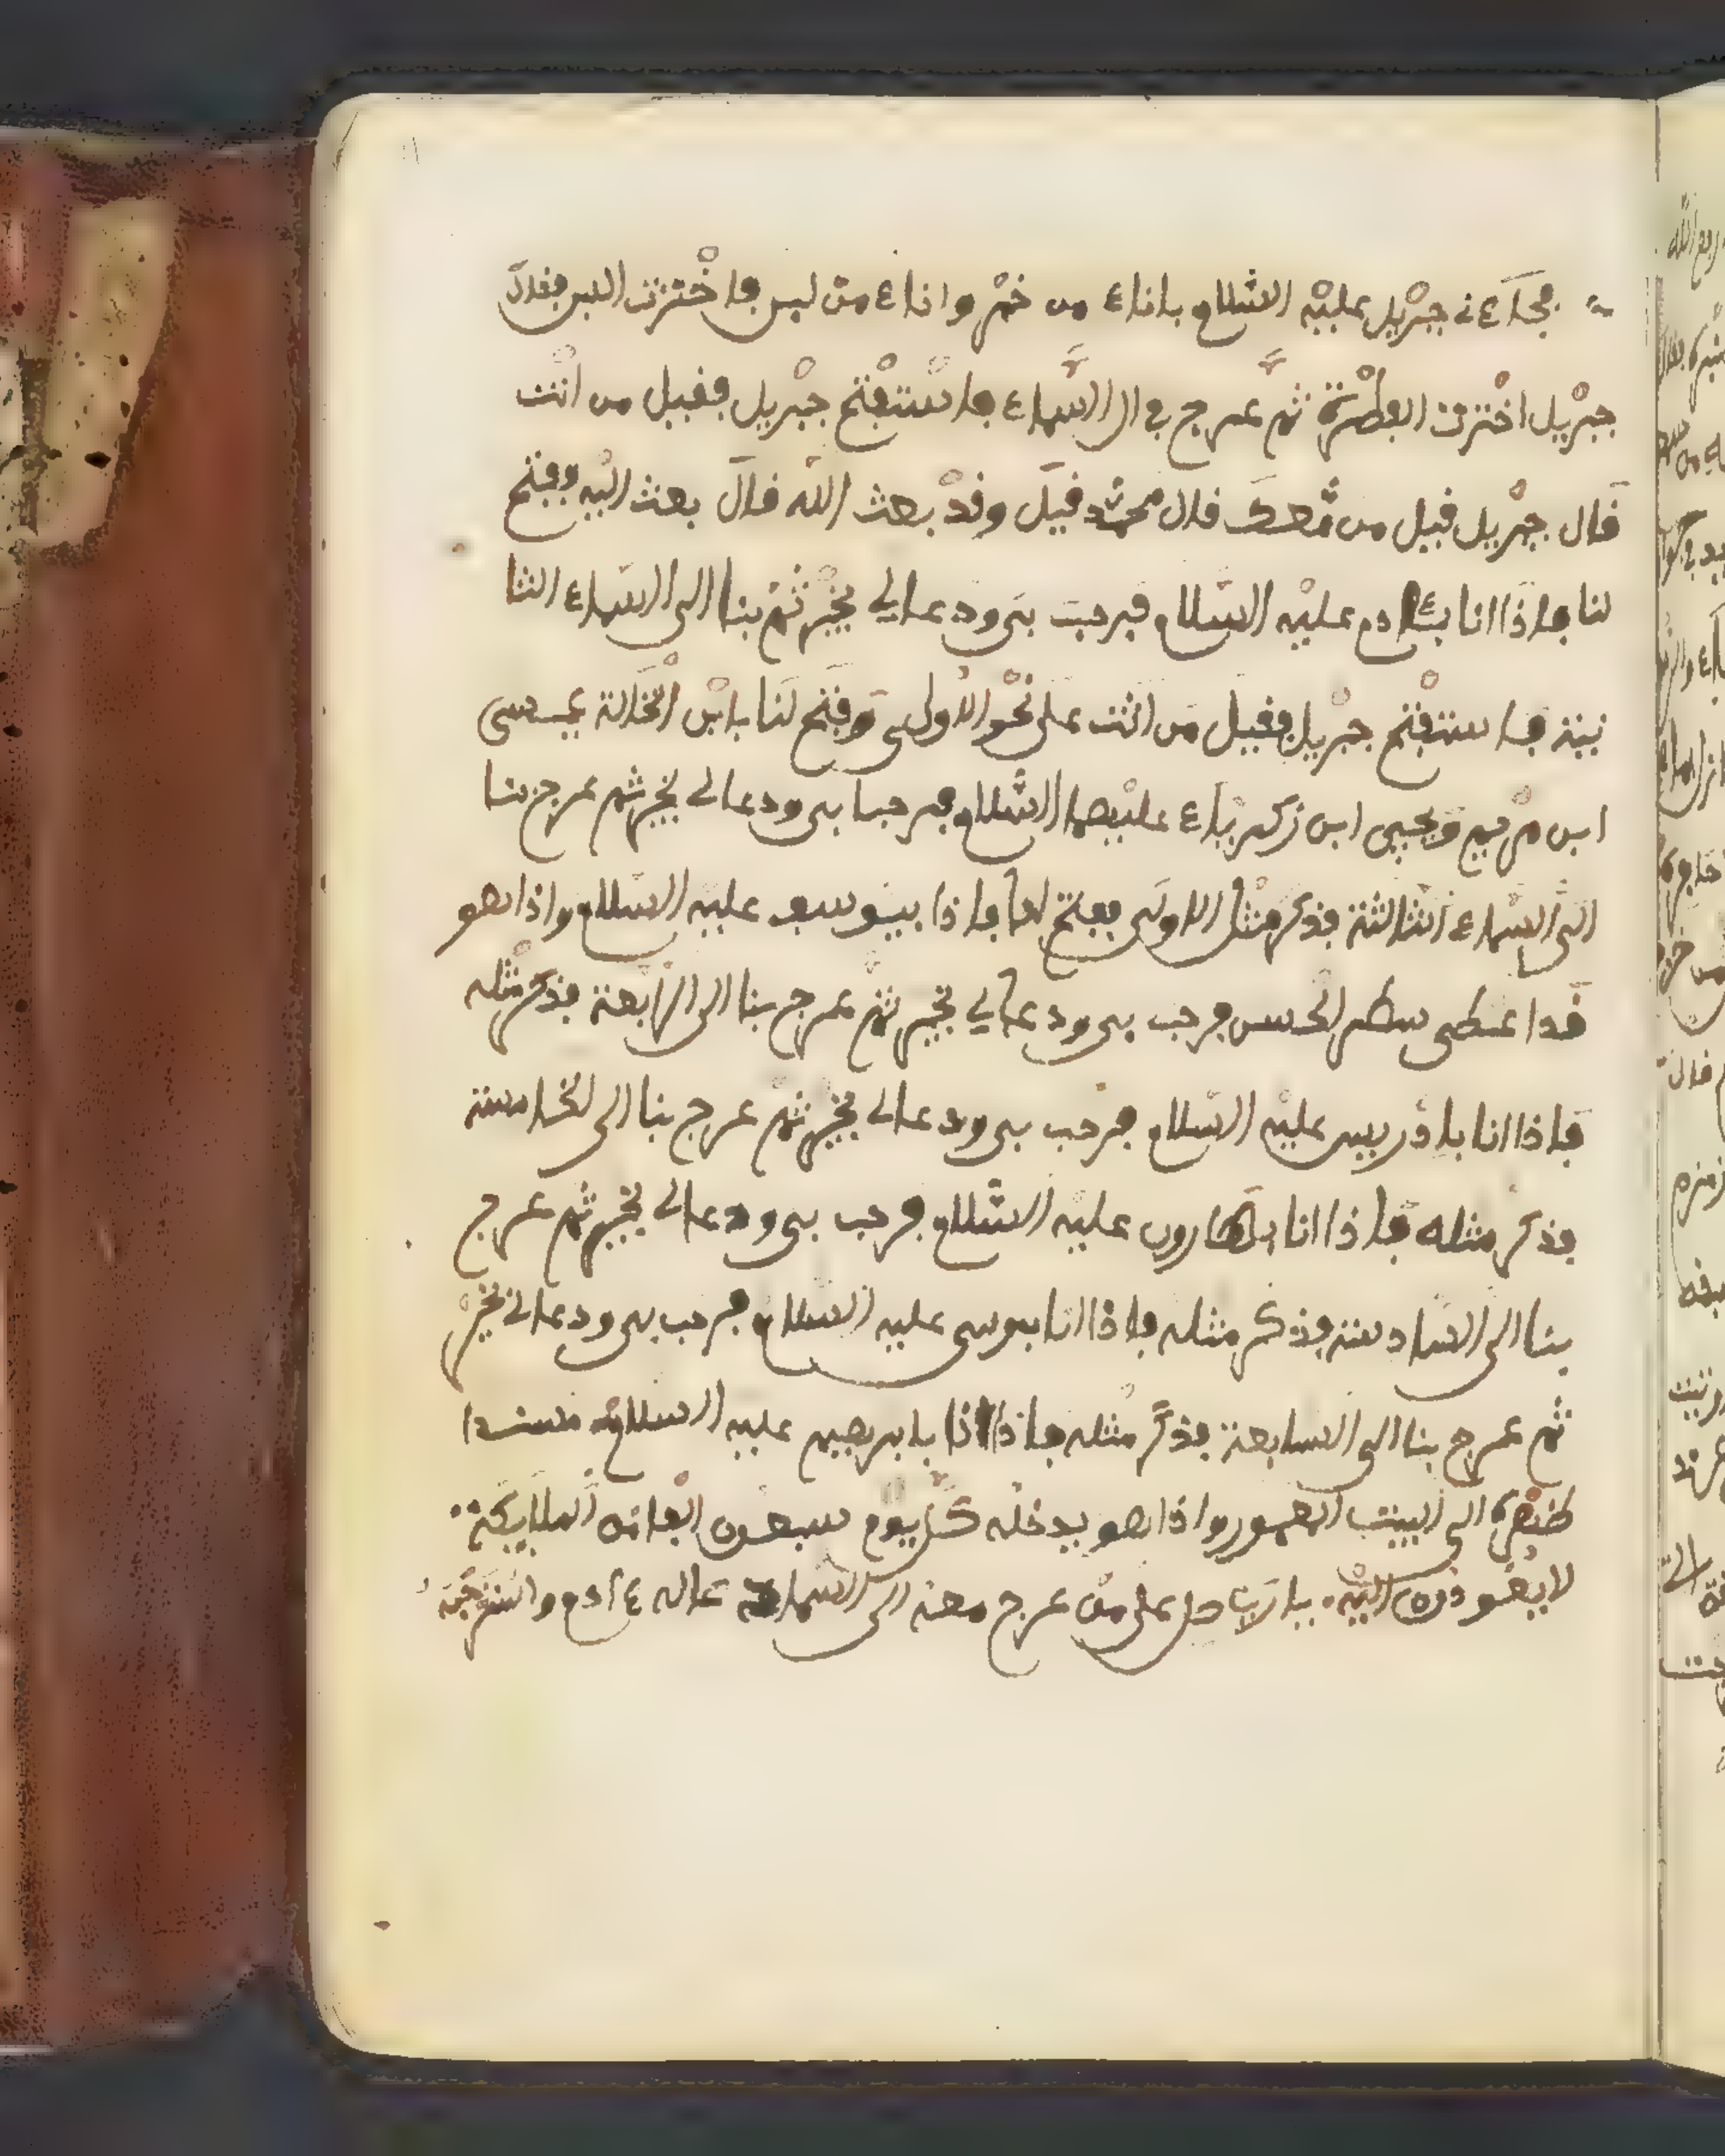 فجاءني جبريل عليه السلام باناء من خمر واناء من لبن فاخترت اللبن فقال
جبريل اخترت الفطرة ثم عرج بي الى السماء فاستفتح جبريل فقيل من انت
قال جبريل قيل من معك قال محمد قيل وقد بعث الله قال بعث اليه ففتح
لنا فاذا انا بئادم عليه السلام فرحب بي ودعا لي بخير ثم بنا الى السماء الثا
نية فاستفتح جبريل فقيل من انت على نحو الاولى وفتح لنا بابن الخالة عيسى
ابن مريم ويحيى ابن زكرياء عليهما السلام فرحبا بي ودعا لي بخير ثم عرج بنا
الى السماء الثالثة فذكر مثل الاولى ففتح لنا فاذا بيوسف عليه السلام واذا هو
قد اعطي شطر الحسن فرحب بي ودعا لي بخير ثم عرج بنا الى الرابعة فذكر مثله
فاذا انا بادريس عليه السلام فرحب بي ودعا لي بخير ثم عرج بنا الى الخامسة
فذكر مثله فاذا انا بهارون عليه السلام فرحب بي ودعا لي بخير ثم عرج
بنا الى السادسة فذكر مثله فاذا انا بموسى عليه السلام فرحب بي ودعا لي بخير
ثم عرج بنا الى السابعة فذكر مثله فاذا انا بابرهيم عليه السلام مسندا
ظهره الى البيت المعمور واذا هو يدخله كل يوم سبعون الف من الملايكة
لا يعودون اليه يا رب صل على من عرج معه الى السماء ءادم